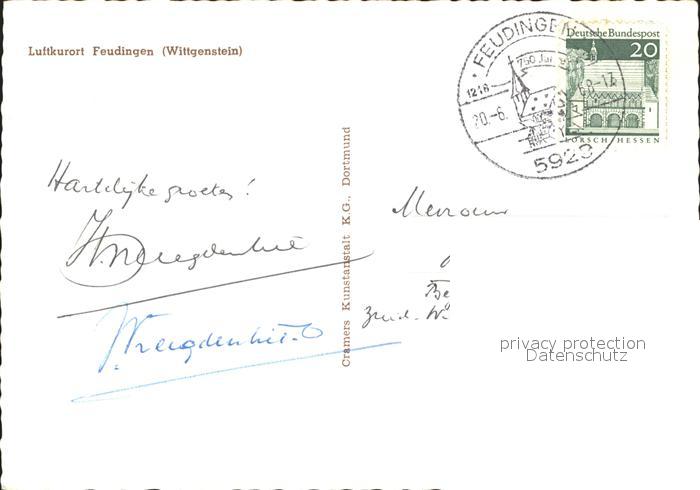 Luftkurort Feudingen (Wittgenstein)
FEUDINGEN
750 Jahre
1218
20.-6. 68-17
5923
Deutsche Bundespost
20
LORSCH · HESSEN
Hartelijke groeten!
Cramers Kunstanstalt K.G., Dortmund
Mevrouw
Be
Zuid-
privacy protection
Datenschutz